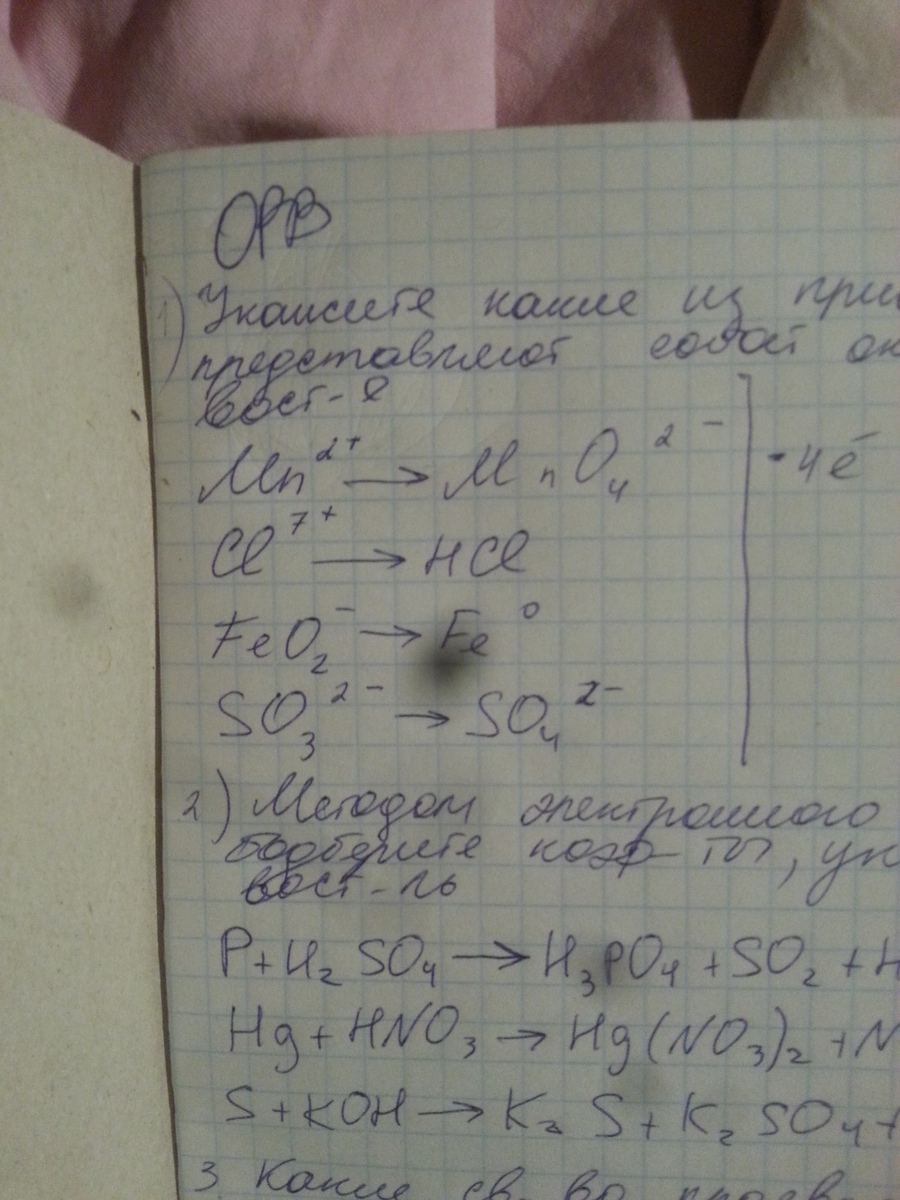 ОВР
1) Укажите какие из при
представляют собой ок
вост-е
Mn²⁺ → MnO₄²⁻ - 4ē
Cl⁷⁺ → HCl
FeO₂⁻ → Fe⁰
SO₃²⁻ → SO₄²⁻
2) Методом электронного
подберите коэф-ты, ук
вост-ль
P + H₂SO₄ → H₃PO₄ + SO₂ + H
Hg + HNO₃ → Hg(NO₃)₂ + N
S + KOH → K₂S + K₂SO₄ +
3. Какие св-во